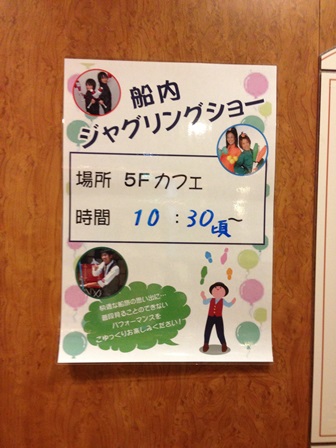 船内
ジャグリングショー
場所 5Fカフェ
時間 10:30頃～
快適な船旅の思い出に…
普段見ることのできない
パフォーマンスを
ごゆっくりお楽しみください！